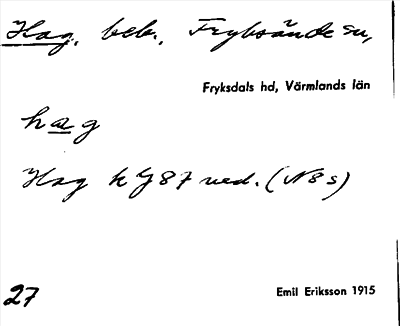 Hag, beb., Fryksände sn,
Fryksdals hd, Värmlands län
hag
Hag k J 87 ned. (N 8 s)
27
Emil Eriksson 1915